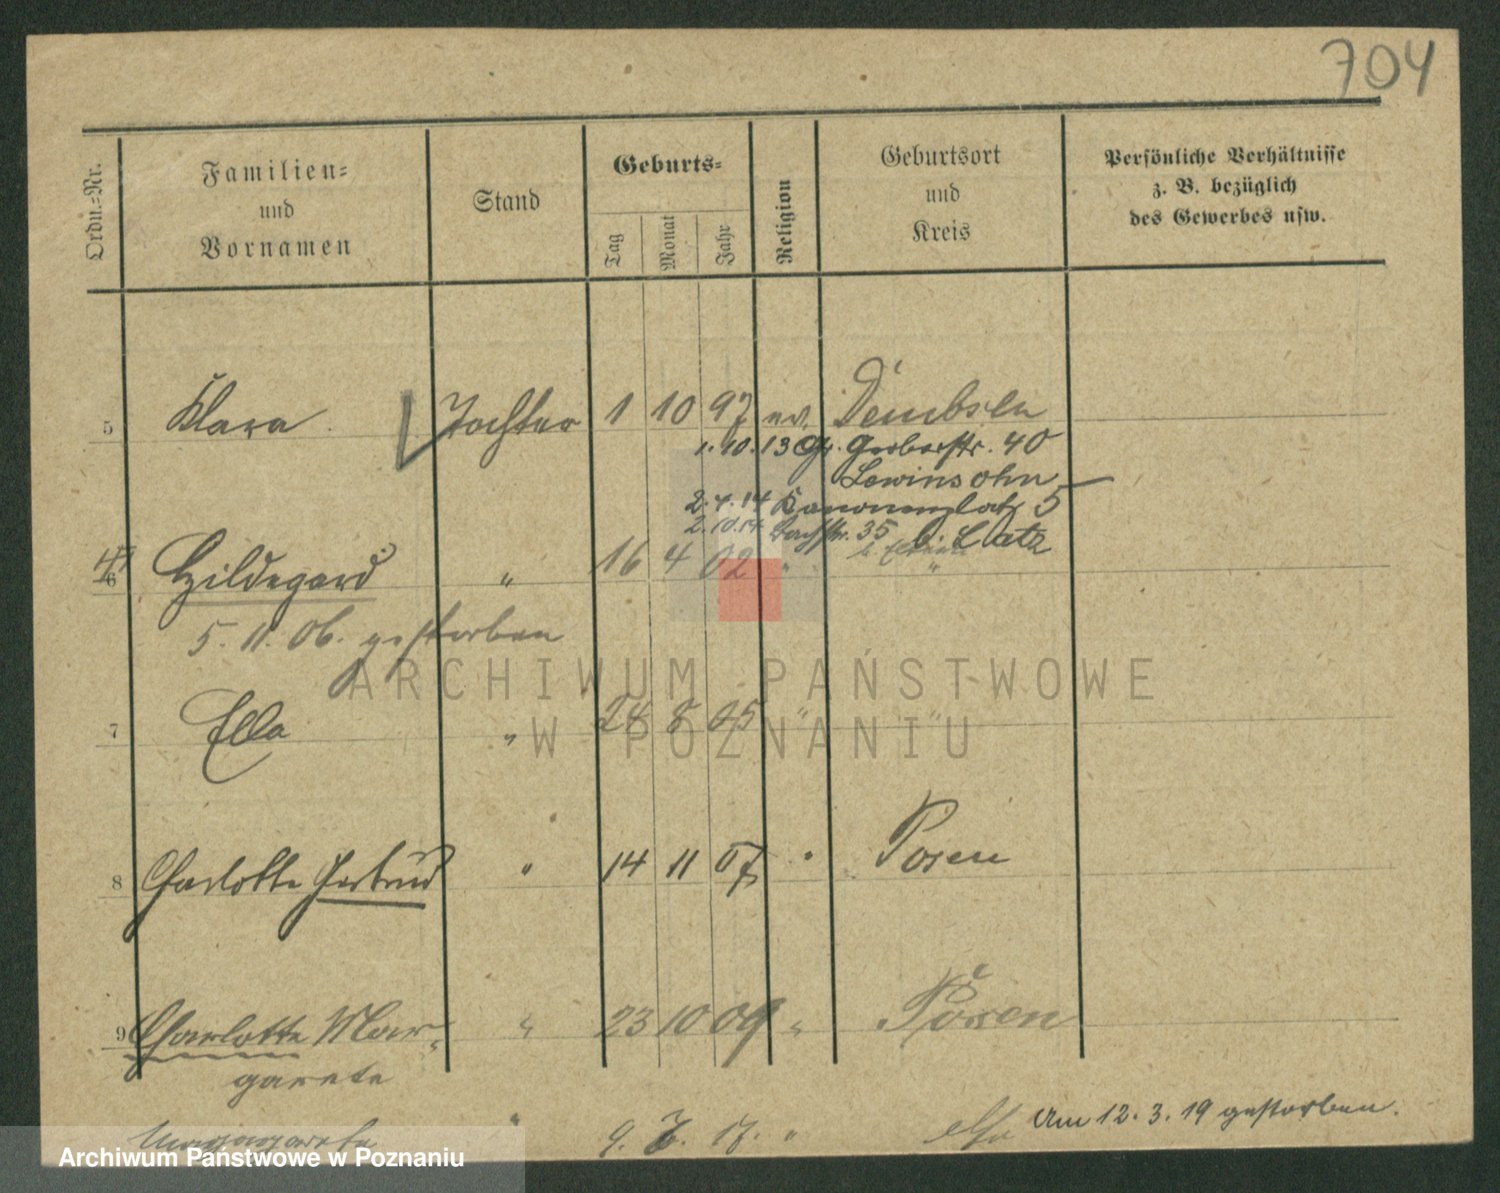 704
Ordn.-Nr.
Familien-
und
Vornamen
Stand
Geburts-
Tag
Monat
Jahr
Religion
Geburtsort
und
Kreis
Persönliche Verhältnisse
z. B. bezüglich
des Gewerbes usw.
5 Klara Tochter 1 10 97 ev. Dembsen
1.10.13 Gr. Gerberstr. 40
Lewinsohn
2.4.14 Kanonenplatz 5
35 b. Latz
6 Hildegard " 16 4 02 " "
5. 11. 06. gestorben
7 Ella " 24 8 05 " "
8 Charlotte Gertrud " 14 11 07 " Posen
9 Charlotte Mar- " 23 10 09 " Posen
garete
" 9. 7. 17. " Am 12. 3. 19 gestorben.
ARCHIWUM PAŃSTWOWE
W POZNANIU
Archiwum Państwowe w Poznaniu